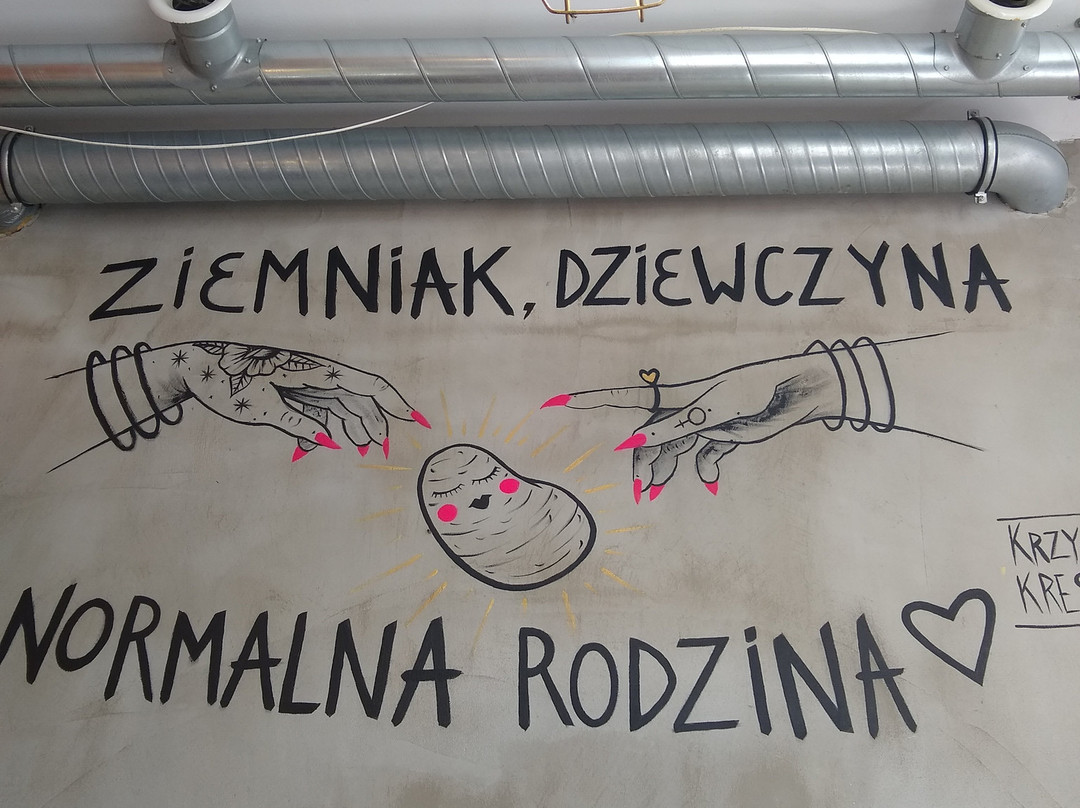 ZiEMNiAK, DZiEWCZYNA
NORMALNA RODZiNA